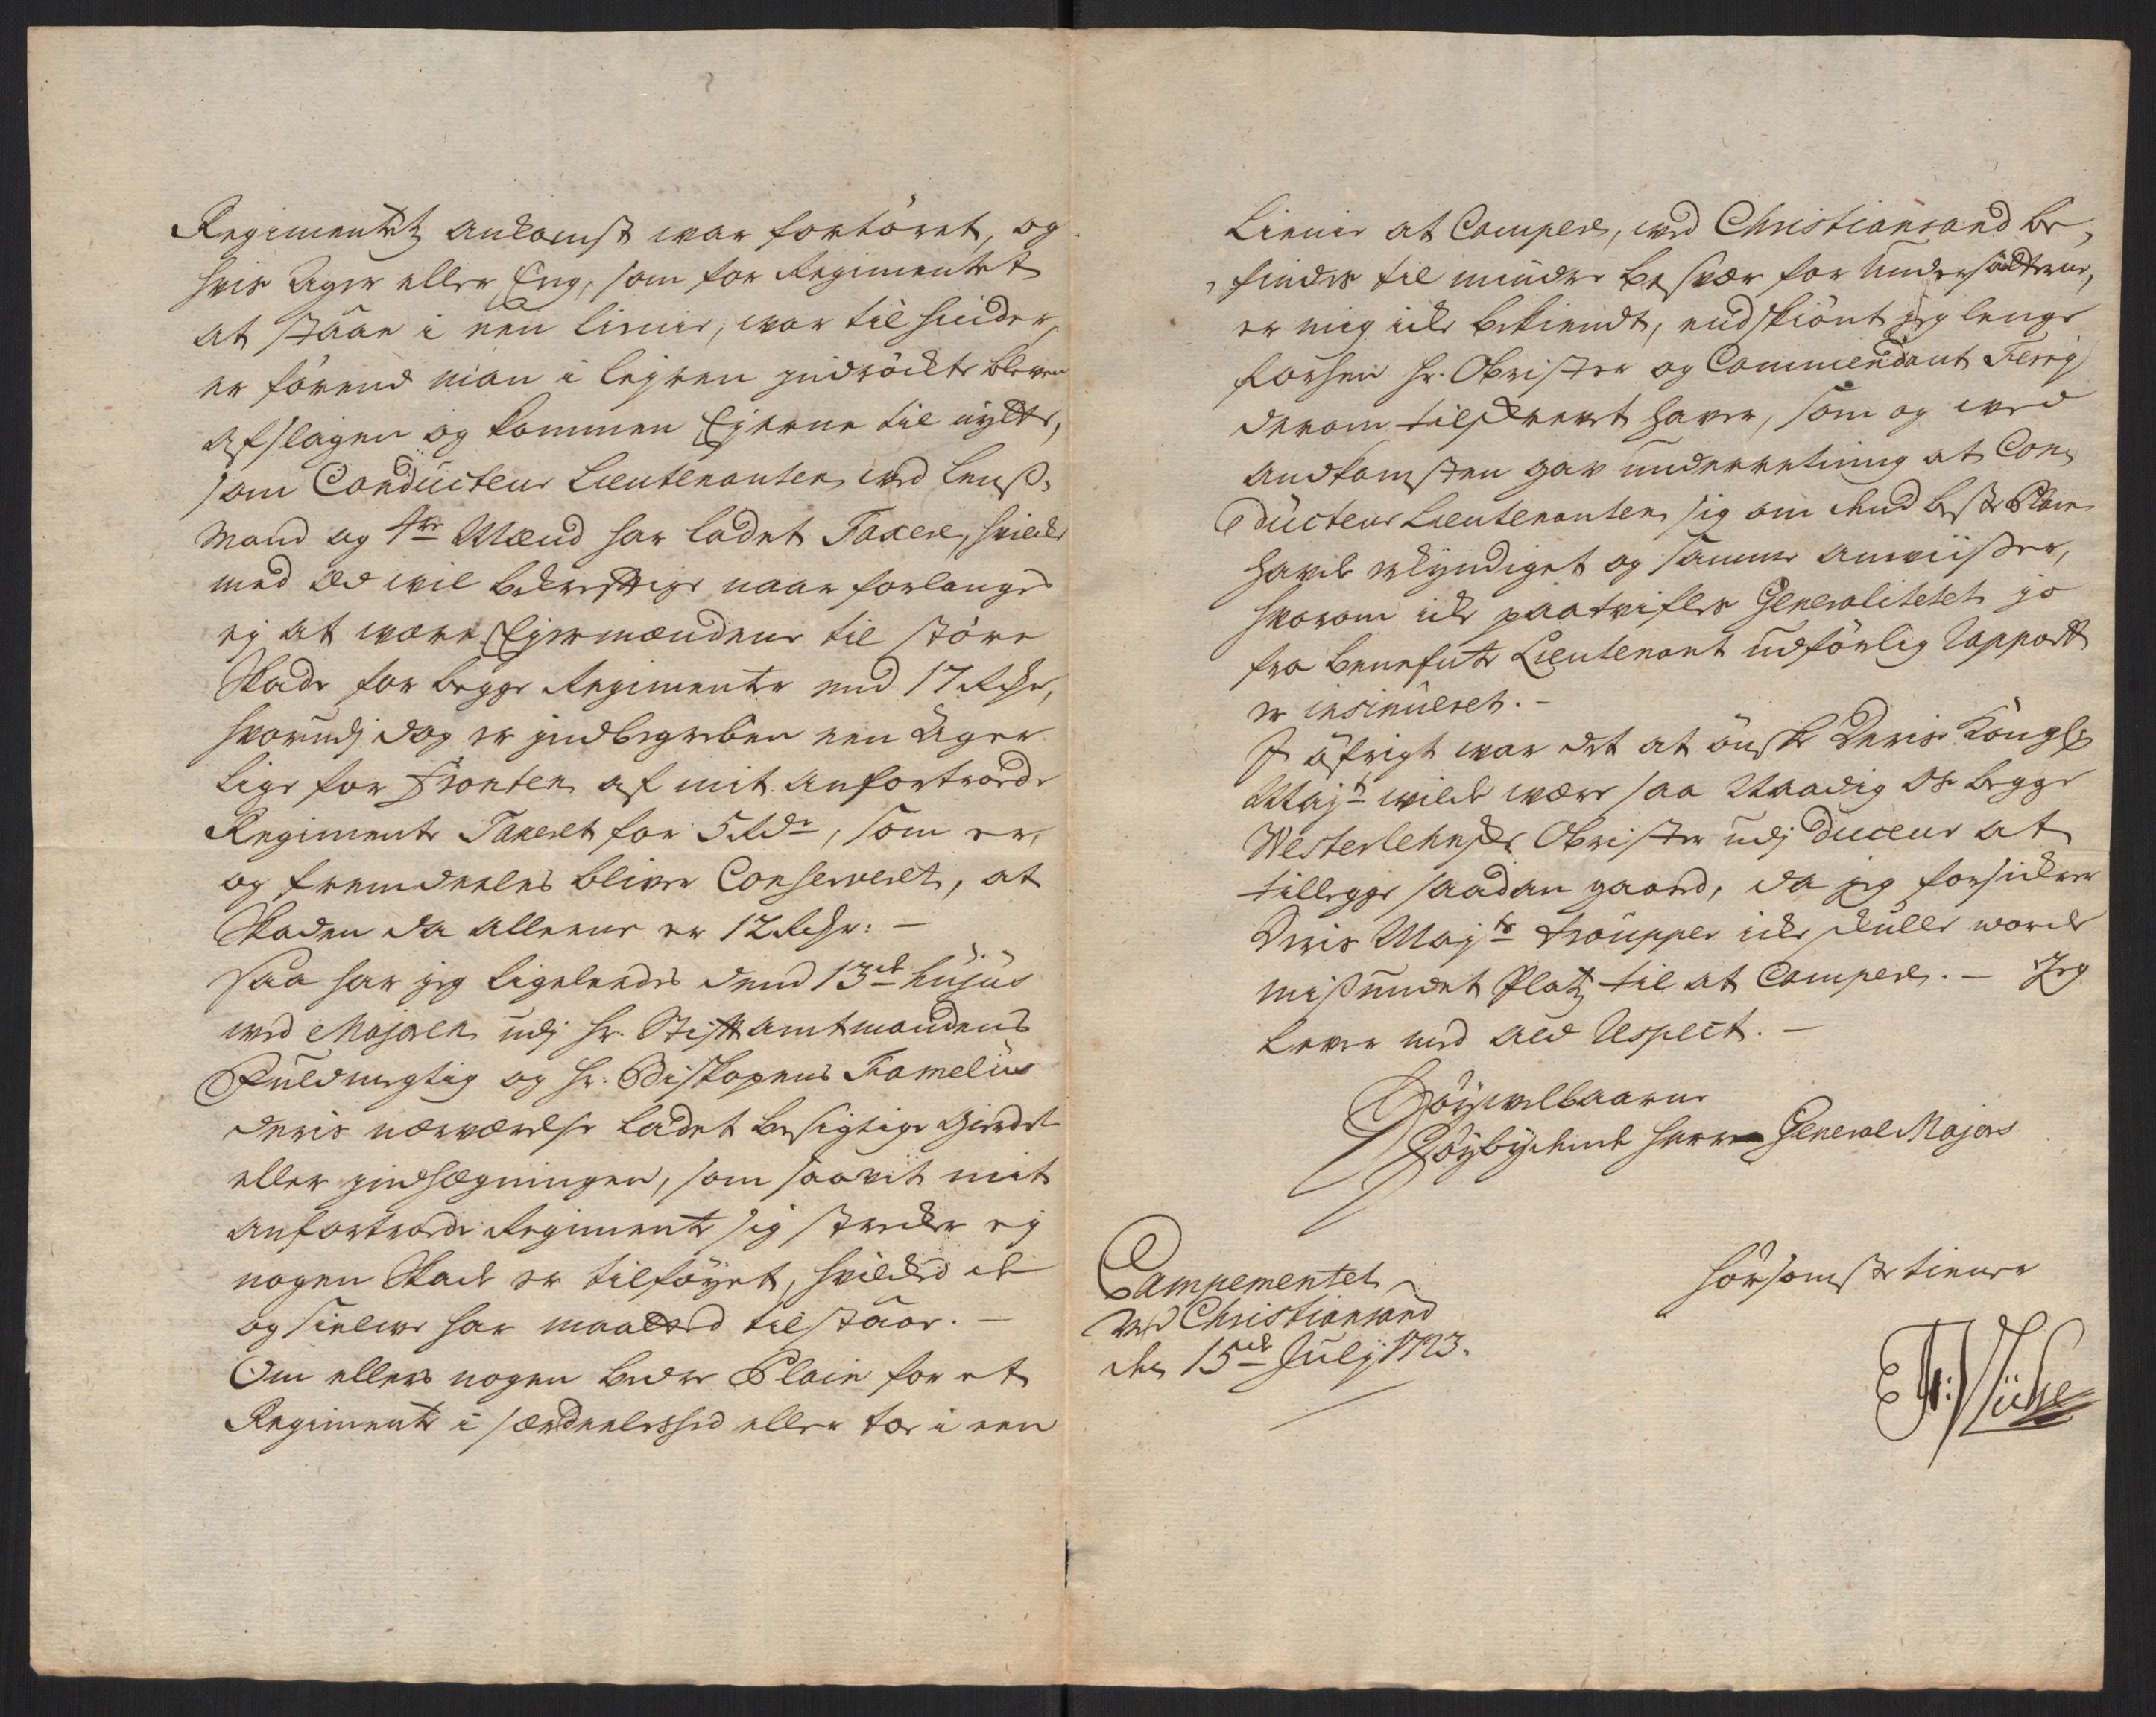 Regimentetz ankomst war fortöret, og
hvis Ager eller Eng, som for Regimentet
at staae i een Linnie, war til hinder,
er förend man i lejren indröckte bleven
afslagen og kommen Ejerne til nytte,
som Conducteur Lieutenanten med Lens¬
mand og 4re Mænd har ladet Taxere, hvilke
med Eed wil bekreftige naar forlanges
ej at være Ejermændene til störe
Skade for begge Regimenter end 17 Rdr,
hvorudj dog er indbegreben een Ager
lige for Fronten af mit anfortroede
Regimente Taxeret for 5 Rdr, som er,
og fremdeeles bliver Conserveret, at
Skaden da alleene er 12 Rdr: —
Saa har jeg ligeleedes dend 13de hujus
ved Majoren udj Hr. Stiftamtmandens
Fuldmegtig og Hr: Biskopens Famelies
deris nærværelse ladet besigtige Gierdet
eller indhægningen, som saavit mit
anfortroede Regimente sig strecker ej
nogen Skade er tilföyet, hvilked de
og sielve har maatted tilstaae. —
Om ellers nogen bedre Plain for et
Regimente i særdeeleshed eller toe i een
Linnie at Campere, ved Christiansand be¬
finder til mindre besvær for Undersaatterne,
er mig icke bekiendt, endskiönt jeg lenge
forhen Hr. Obrister og Commendant
derom tilskrevet haver, som og ved
andkomsten gav underretning at Con¬
ducteur Lieutenanten sig om dend beste Plain
havde erkyndiget og samme anviisser,
hvorom icke paatvifles Generalitetet jo
fra benefnte Lieutenant udförlig Rapport
er insinueret. —
I öfrigt war det at önske Deris Kongl:
Mayt vilde være saa Naadig os begge
Westerlehnske Obrister udj at
tillegge saadan gaard, da jeg forsickrer
Deris Mayts trouppe icke skulle worde
misundet Platz til at Campere. — Jeg
lever med ald Respect. —
Höyvelbaarne
Höybydende Herre General Majors
Campementet
ved Christiansand
den 15de Julij 1723.
hörsomste tienere